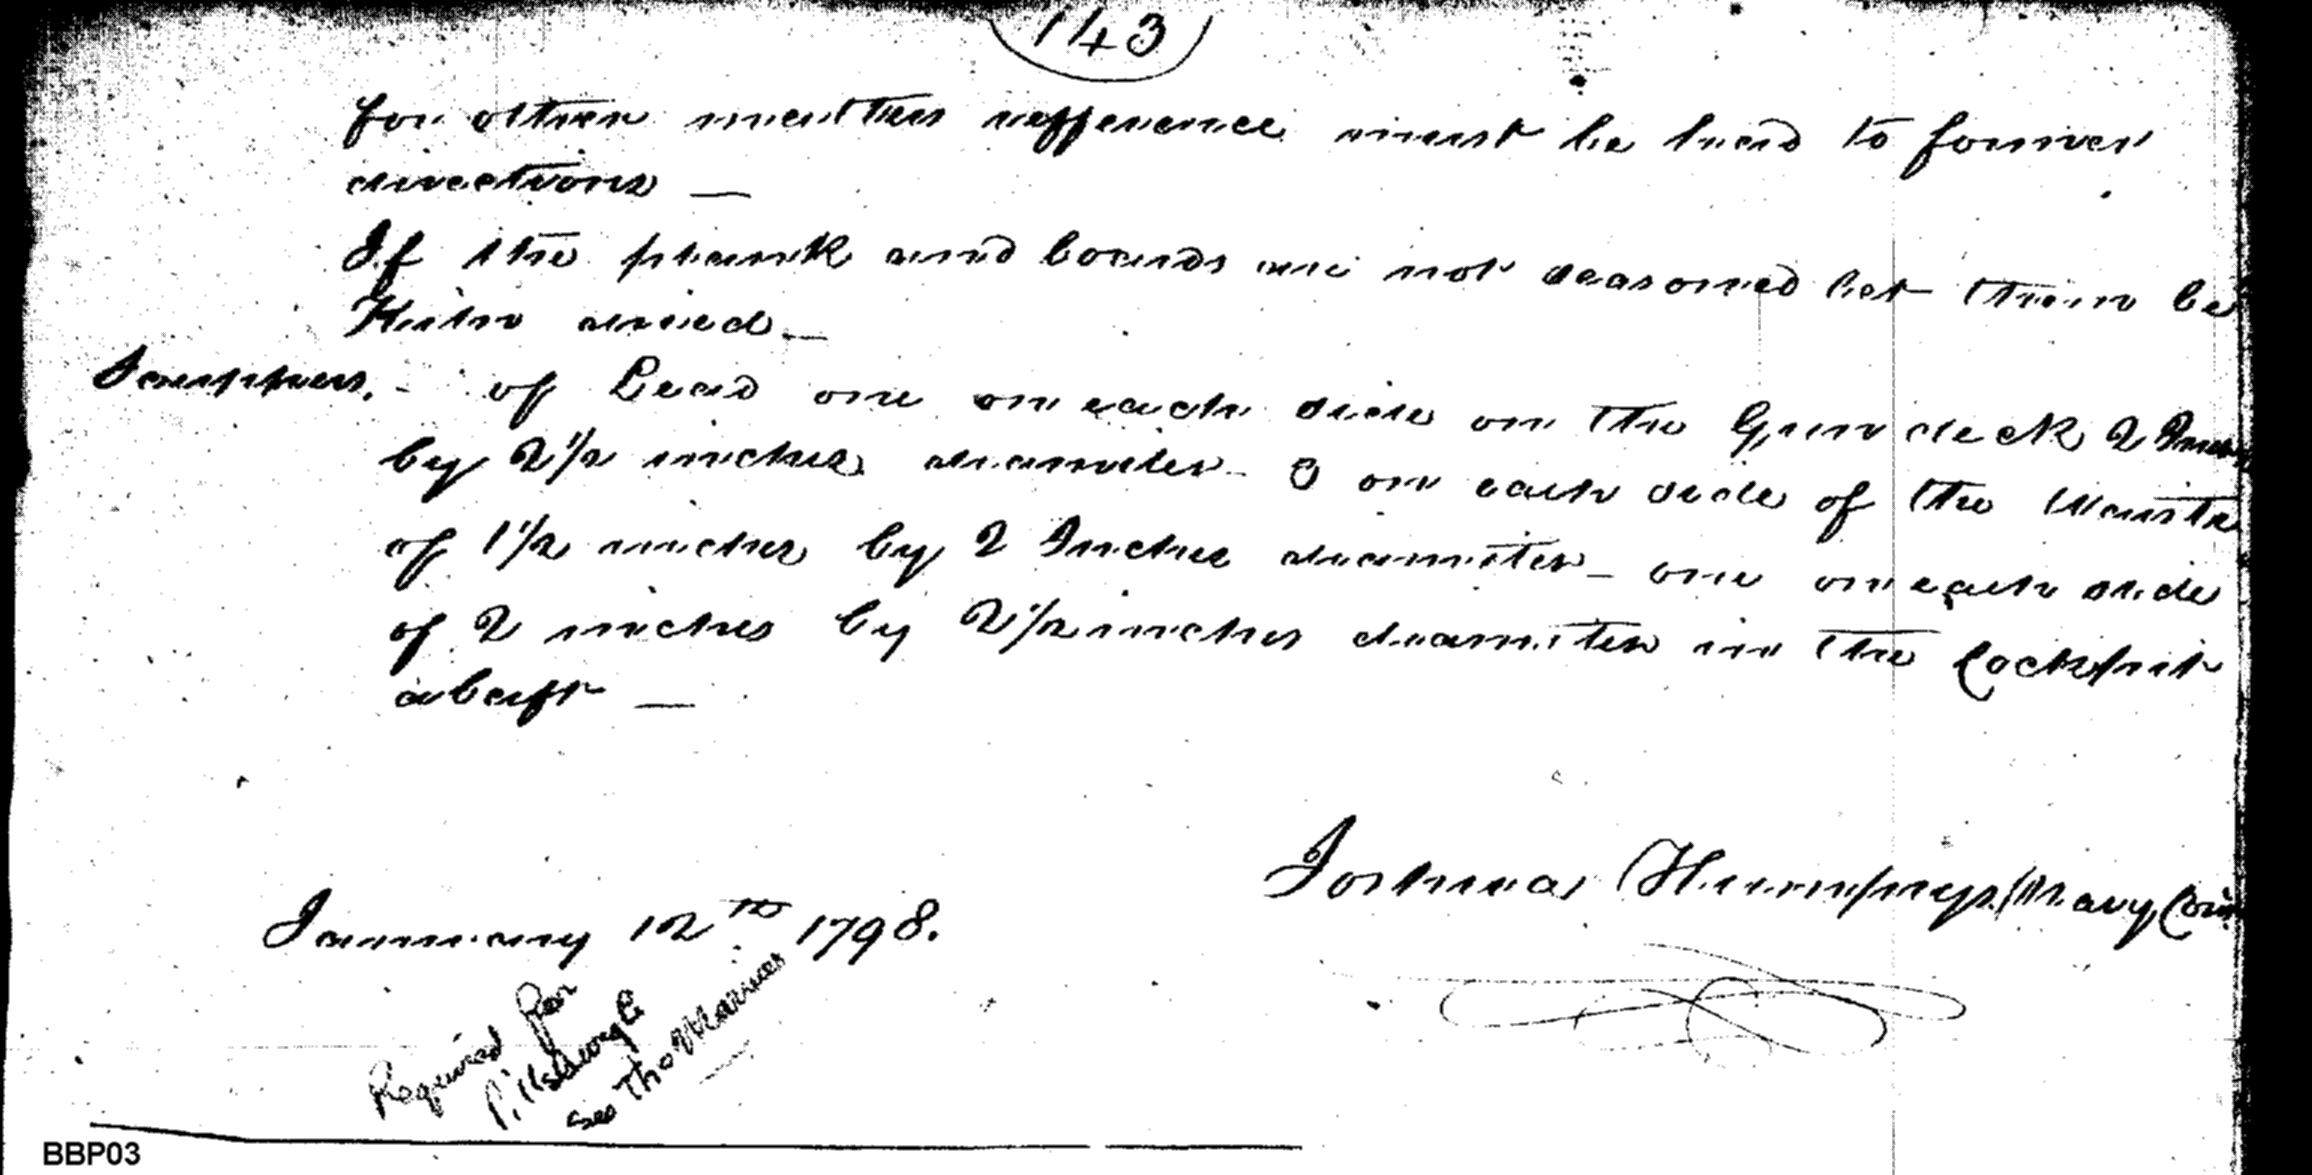 143
for other matters refference must be had to former
directions —
If the plank and boards are not seasoned let them be
Kiln dried —
Scuppers. - of Lead one on each side on the Gun deck 2 Inches
by 2 1/2 inches diameter - 3 on each side of the
of 1 1/2 inches by 2 Inches diameter - one on each side
of 2 inches by 2 1/2 inches diameter in the Cockpit
abaft —
Joshua Humphreys Navy Con
January 12th 1798.
Required for
Pittsburgh
See Tho Marines
BBP03